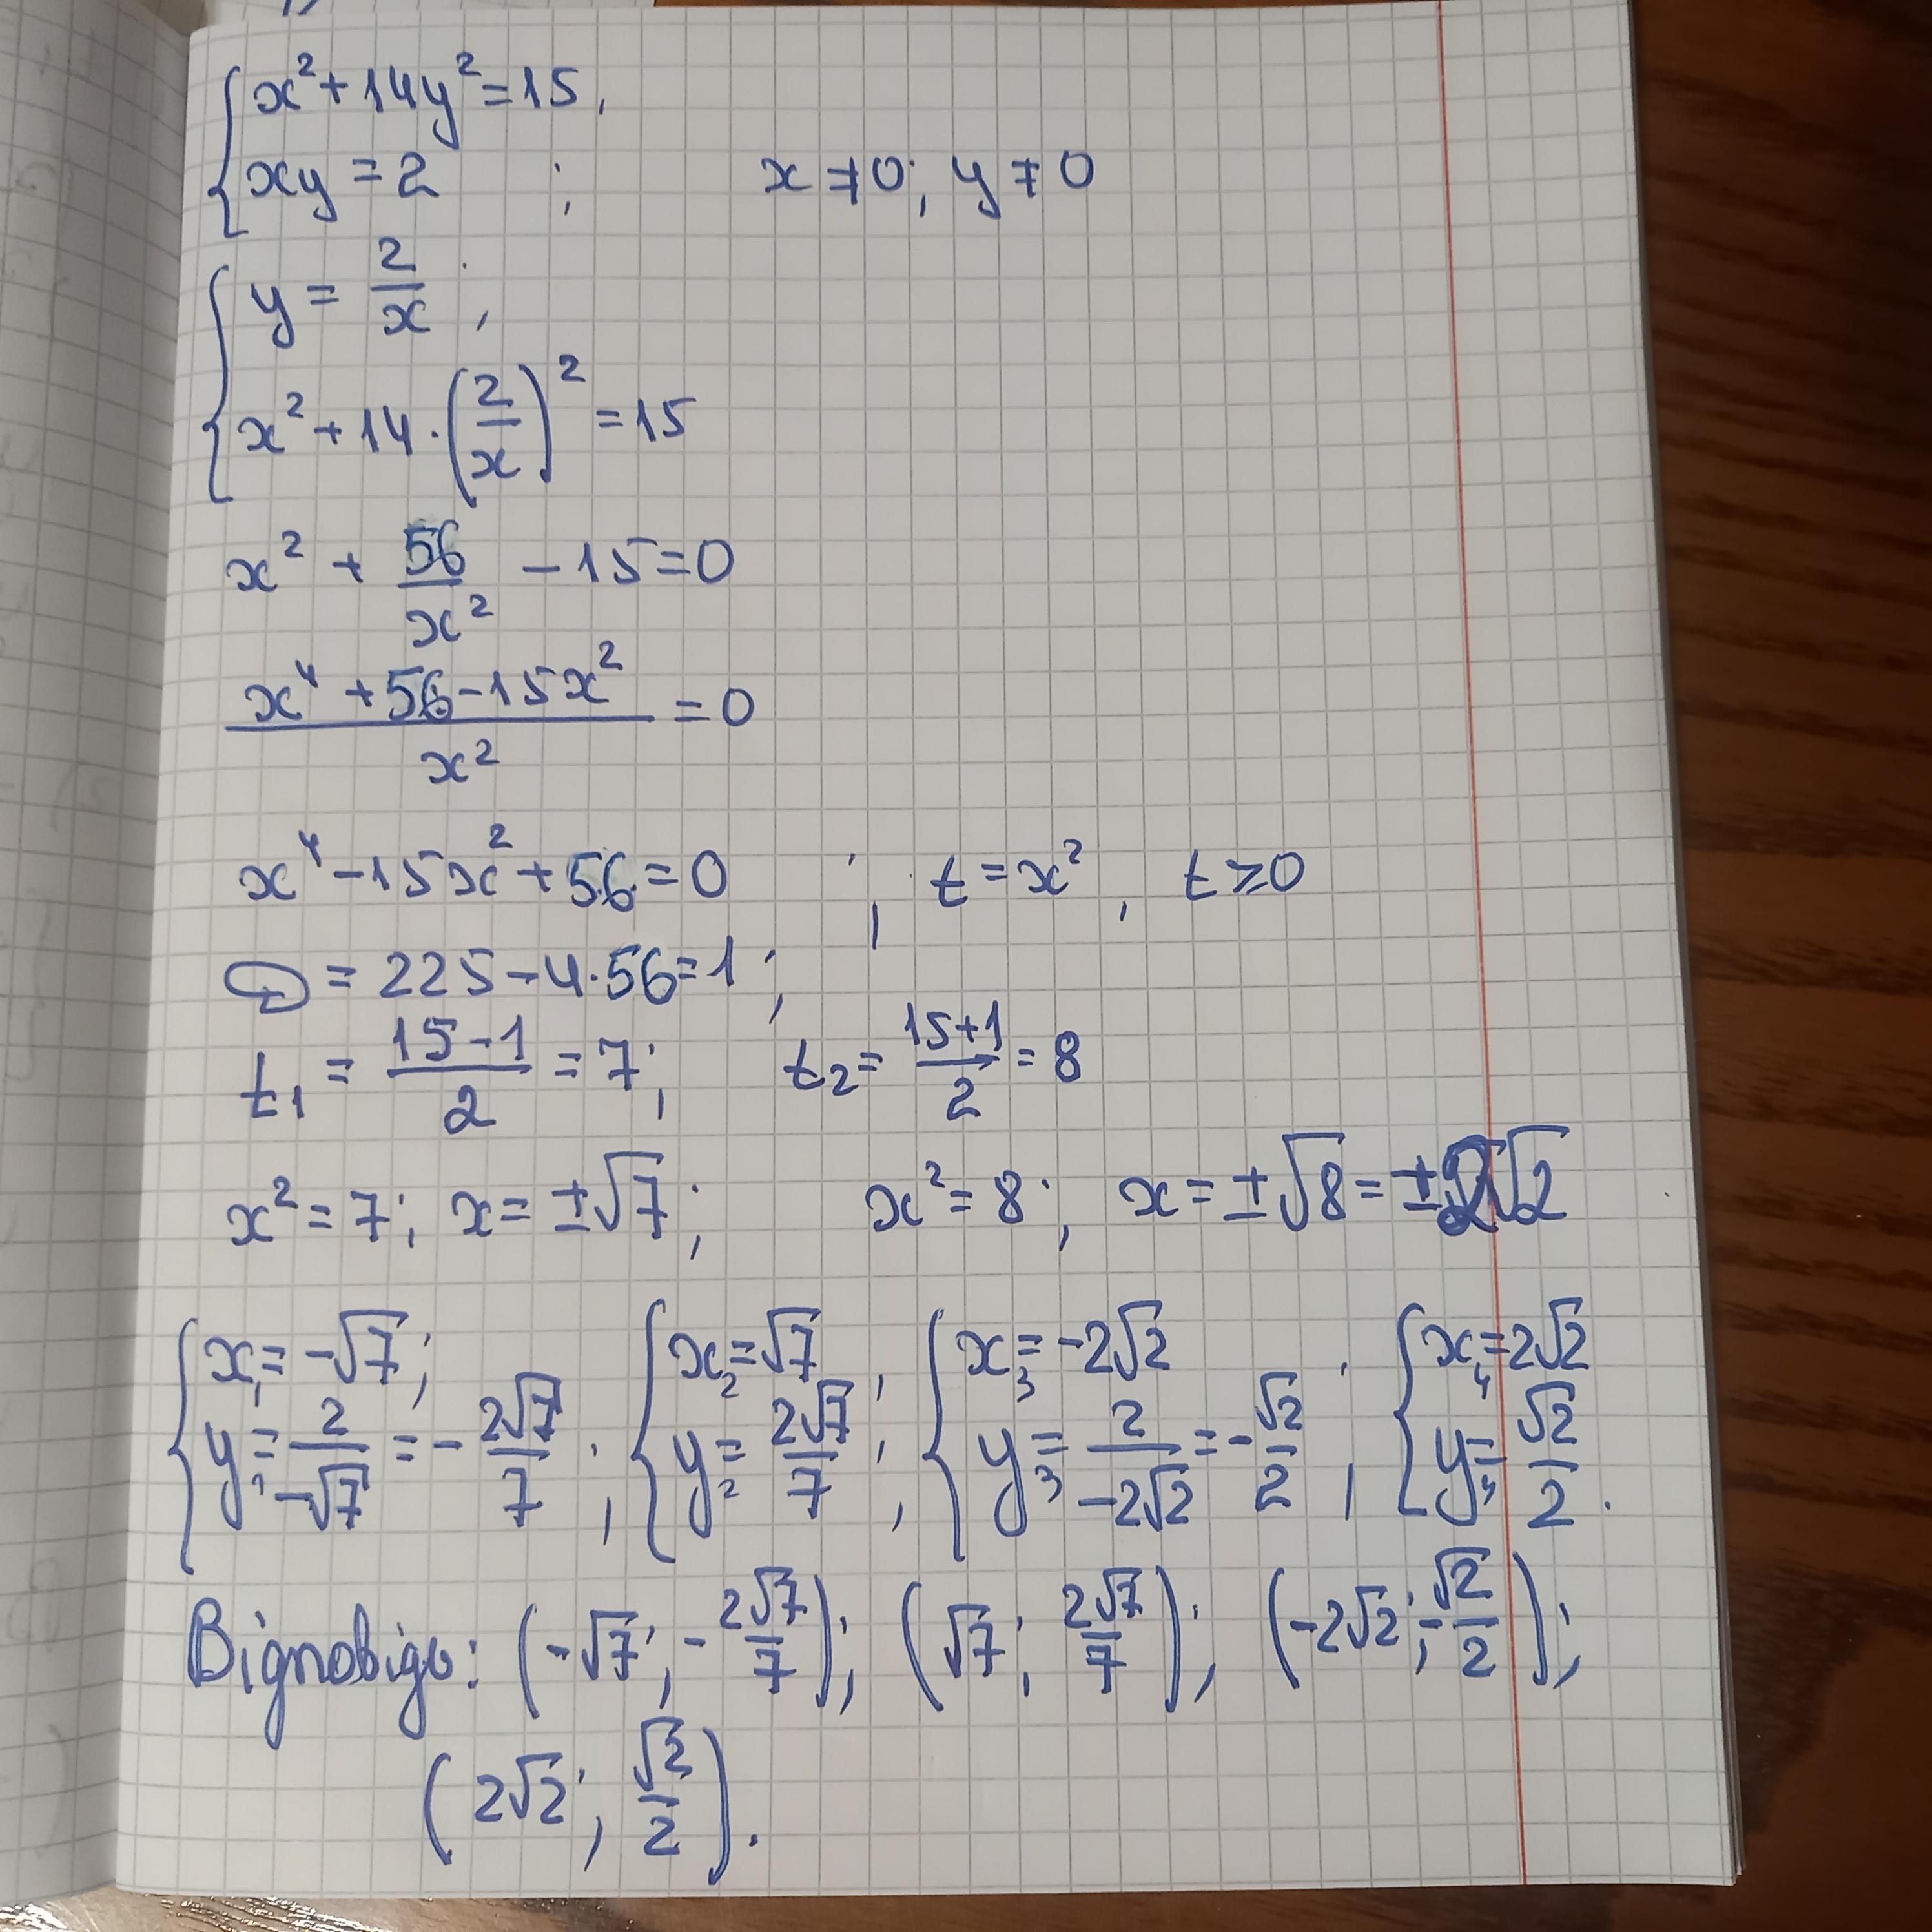 { x² + 14y² = 15,
xy = 2 ; x ≠ 0; y ≠ 0
{ y = 2/x ;
x² + 14·(2/x)² = 15
x² + 56/x² − 15 = 0
(x⁴ + 56 − 15x²)/x² = 0
x⁴ − 15x² + 56 = 0 ; t = x², t ⩾ 0
D = 225 − 4·56 = 1;
t₁ = (15−1)/2 = 7; t₂ = (15+1)/2 = 8
x² = 7; x = ±√7; x² = 8; x = ±√8 = ±2√2
{ x₁ = −√7; { x₂ = √7; { x₃ = −2√2 ; { x₄ = 2√2
y₁ = 2/−√7 = −2√7/7 ; y₂ = 2√7/7 ; y₃ = 2/−2√2 = −√2/2 , y₄ = √2/2 .
Відповідь: (−√7; −2√7/7); (√7; 2√7/7); (−2√2; −√2/2);
(2√2; √2/2).